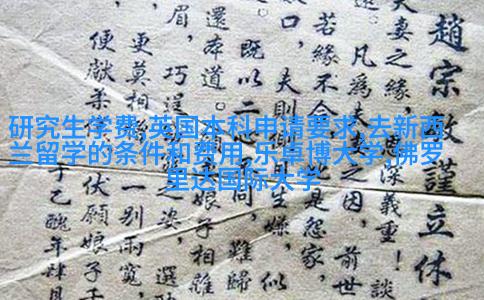 研究生学费,英国本科申请要求,去新西
兰留学的条件和费用,乐卓博大学,佛罗
里达国际大学
趙宗敏謹立休
夫妻之緣,深義重!談
凡為夫之因,前世
若緣不合是怨家,
口,夫則生嫌,似
既以二心同,難歸
還本道。娘子相離
眉,巧逞之姿,選
更莫相一別兩寬,
便獻柔伏願娘子千
于乙醜年肆月